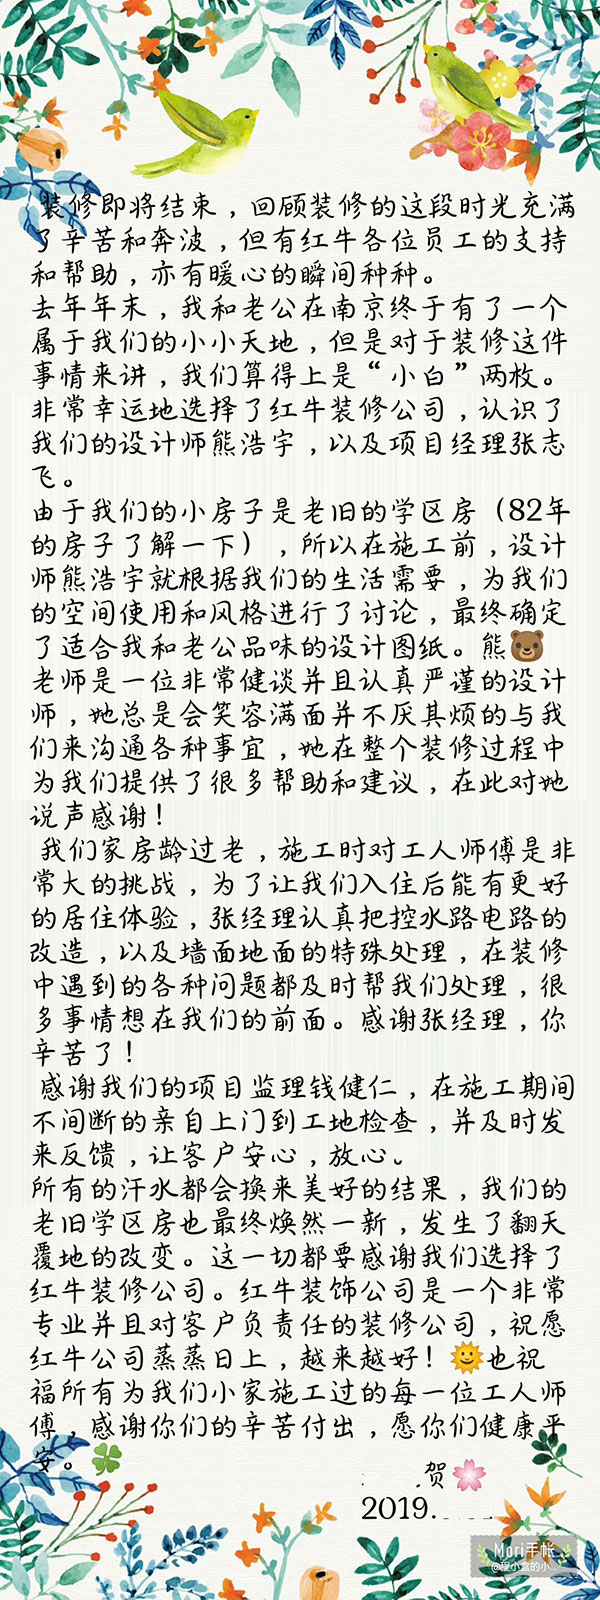 装修即将结束，回顾装修的这段时光充满
了辛苦和奔波，但有红牛各位员工的支持
和帮助，亦有暖心的瞬间种种。
去年年末，我和老公在南京终于有了一个
属于我们的小小天地，但是对于装修这件
事情来讲，我们算得上是“小白”两枚。
非常幸运地选择了红牛装修公司，认识了
我们的设计师熊浩宇，以及项目经理张志
飞。
由于我们的小房子是老旧的学区房（82年
的房子了解一下），所以在施工前，设计
师熊浩宇就根据我们的生活需要，为我们
的空间使用和风格进行了讨论，最终确定
了适合我和老公品味的设计图纸。熊🐻
老师是一位非常健谈并且认真严谨的设计
师，她总是会笑容满面并不厌其烦的与我
们来沟通各种事宜，她在整个装修过程中
为我们提供了很多帮助和建议，在此对她
说声感谢！
我们家房龄过老，施工时对工人师傅是非
常大的挑战，为了让我们入住后能有更好
的居住体验，张经理认真把控水路电路的
改造，以及墙面地面的特殊处理，在装修
中遇到的各种问题都及时帮我们处理，很
多事情想在我们的前面。感谢张经理，你
辛苦了！
感谢我们的项目监理钱健仁，在施工期间
不间断的亲自上门到工地检查，并及时发
来反馈，让客户安心，放心。
所有的汗水都会换来美好的结果，我们的
老旧学区房也最终焕然一新，发生了翻天
覆地的改变。这一切都要感谢我们选择了
红牛装修公司。红牛装饰公司是一个非常
专业并且对客户负责任的装修公司，祝愿
红牛公司蒸蒸日上，越来越好！🌞也祝
福所有为我们小家施工过的每一位工人师
傅，感谢你们的辛苦付出，愿你们健康平
安。🍀
贺🌸
2019.
Mori手帐